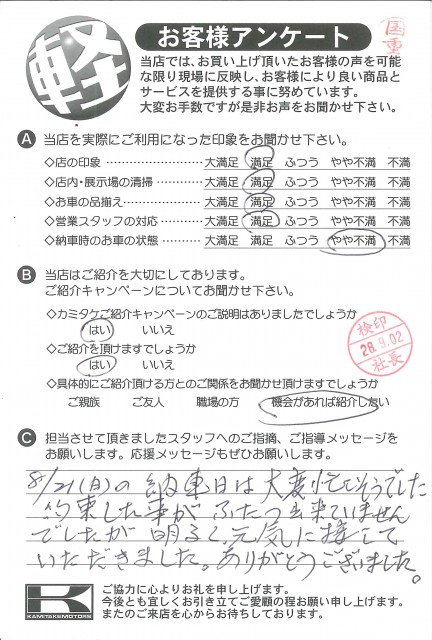 軽
お客様アンケート
国重
当店では、お買い上げ頂いたお客様の声を可能
な限り現場に反映し、お客様により良い商品と
サービスを提供する事に努めています。
大変お手数ですが是非お声をお聞かせ下さい。
A 当店を実際にご利用になった印象をお聞かせ下さい。
◇店の印象 ………………… 大満足 満足 ふつう やや不満 不満
◇店内・展示場の清掃 ………… 大満足 満足 ふつう やや不満 不満
◇お車の品揃え ……………… 大満足 満足 ふつう やや不満 不満
◇営業スタッフの対応 ………… 大満足 満足 ふつう やや不満 不満
◇納車時のお車の状態 ………… 大満足 満足 ふつう やや不満 不満
B 当店はご紹介を大切にしております。
ご紹介キャンペーンについてお聞かせ下さい。
◇カミタケご紹介キャンペーンのご説明はありましたでしょうか
はい いいえ
◇ご紹介を頂けますでしょうか
はい いいえ
◇具体的にご紹介頂ける方とのご関係をお聞かせ頂けますでしょうか
ご親族 ご友人 職場の方 機会があれば紹介したい
検印
28.9.02
社長
C 担当させて頂きましたスタッフへのご指摘、ご指導メッセージを
お願いします。応援メッセージもぜひお願いします。
8/21(日)の納車日は大変忙しそうでした
約束した事がふたつ出来ていません
でしたが明るく、元気に接して
いただきました。ありがとうございました。
K
KAMITAKEMOTORS
ご協力に心よりお礼を申し上げます。
今後とも宜しくお引き立てご愛顧の程お願い申し上げます。
またのご来店を心からお待ちしております。